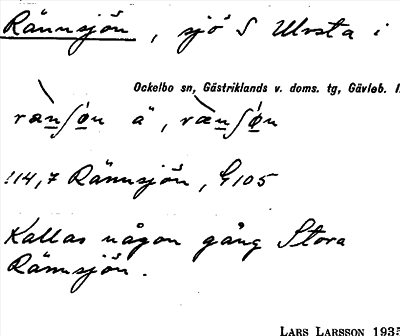 Rännsjön, sjö S Ulvsta i
Ockelbo sn, Gästriklands v. doms. tg, Gävleb. l.
rænʃøn ä, rænʃøn
!14,7 Rännsjön, G105
Kallas någon gång Stora
Rännsjön.
LARS LARSSON 1935